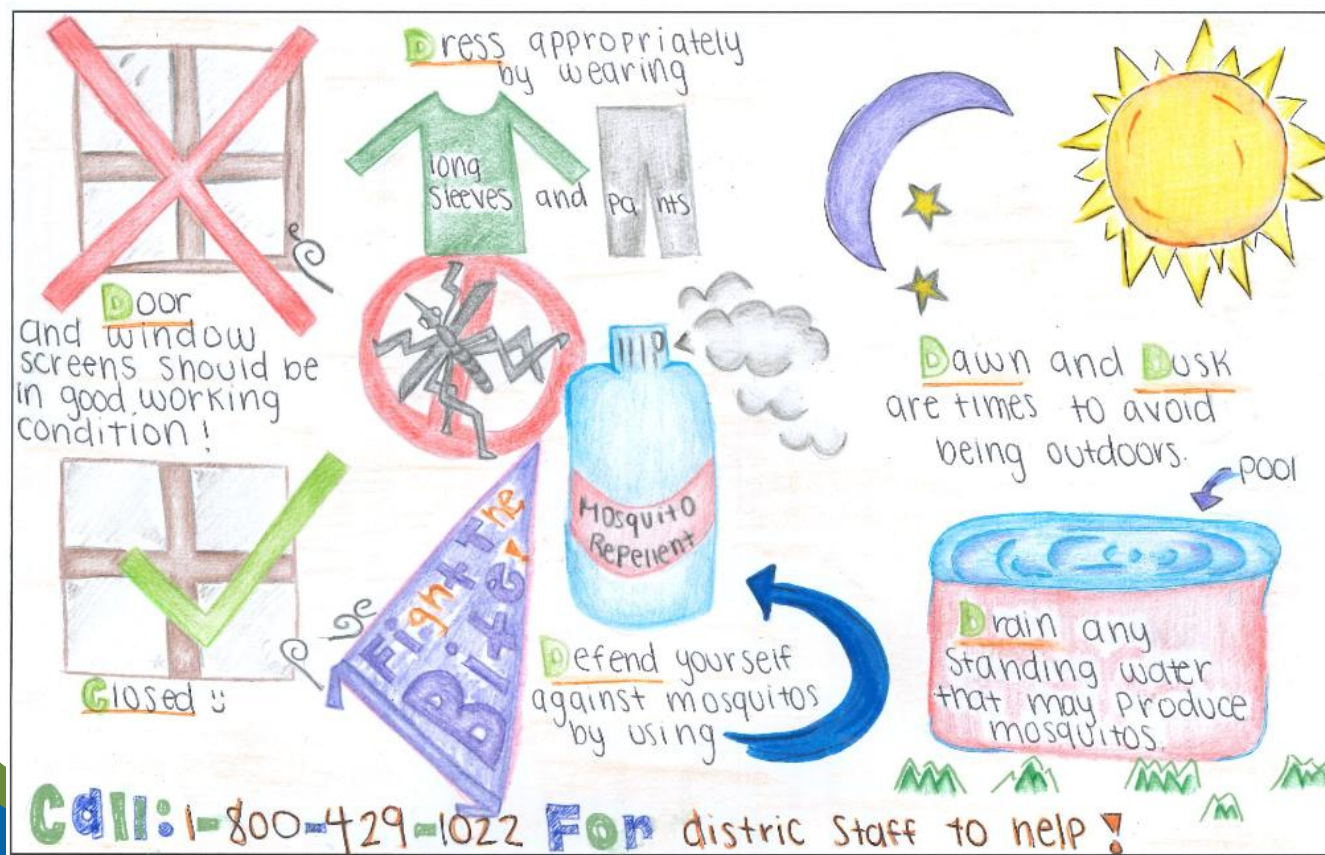 Dress appropriately
by wearing
long
sleeves and pants
Door
and window
screens should be
in good working
condition!
Closed
Fight The
Bite!
MOSquitO
Repellent
Defend yourself
against mosquitos
by using
Dawn and Dusk
are times to avoid
being outdoors.
POOl
Drain any
Standing water
that may Produce
mosquitos.
Call: 1-800-429-1022 For distric Staff to help!